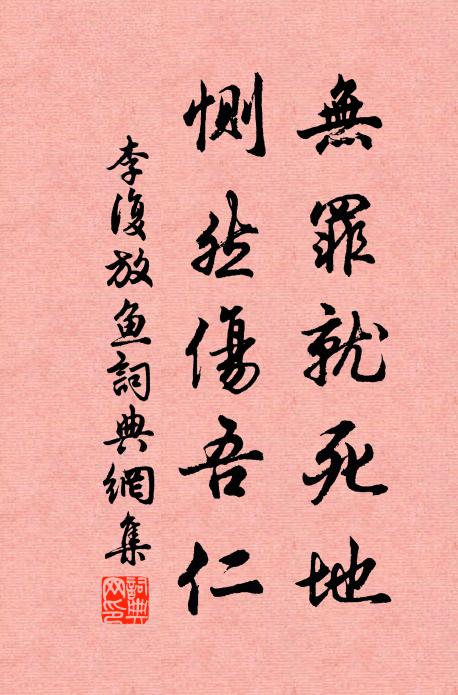 無罪就死地
惻然傷吾仁
李復放魚詞典網集
詞典網印